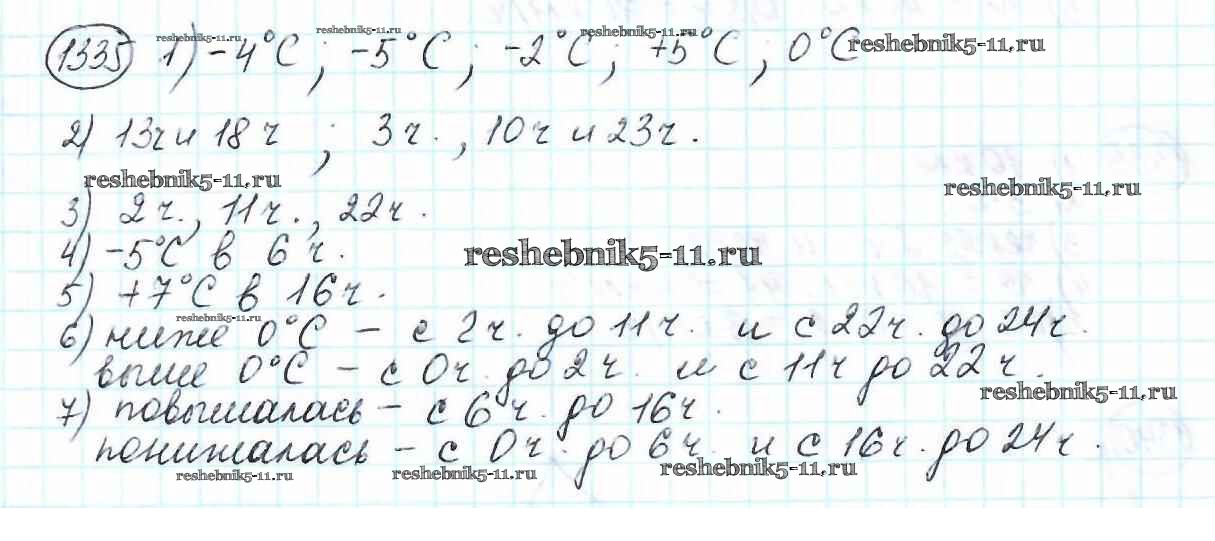 1335 1) -4°C; -5°C; -2°C; +5°C; 0°C
2) 13ч и 18ч; 3ч., 10ч и 23ч.
3) 2ч., 11ч., 22ч.
4) -5°C в 6ч.
5) +7°C в 16ч.
6) ниже 0°C - с 2ч. до 11ч. и с 22ч. до 24ч.
выше 0°C - с 0ч. до 2ч. и с 11ч до 22ч.
7) повышалась - с 6ч. до 16ч.
понижалась - с 0ч. до 6ч. и с 16ч. до 24ч.
reshebnik5-11.ru
reshebnik5-11.ru
reshebnik5-11.ru
reshebnik5-11.ru
reshebnik5-11.ru
reshebnik5-11.ru
reshebnik5-11.ru
reshebnik5-11.ru
reshebnik5-11.ru
reshebnik5-11.ru
reshebnik5-11.ru
reshebnik5-11.ru